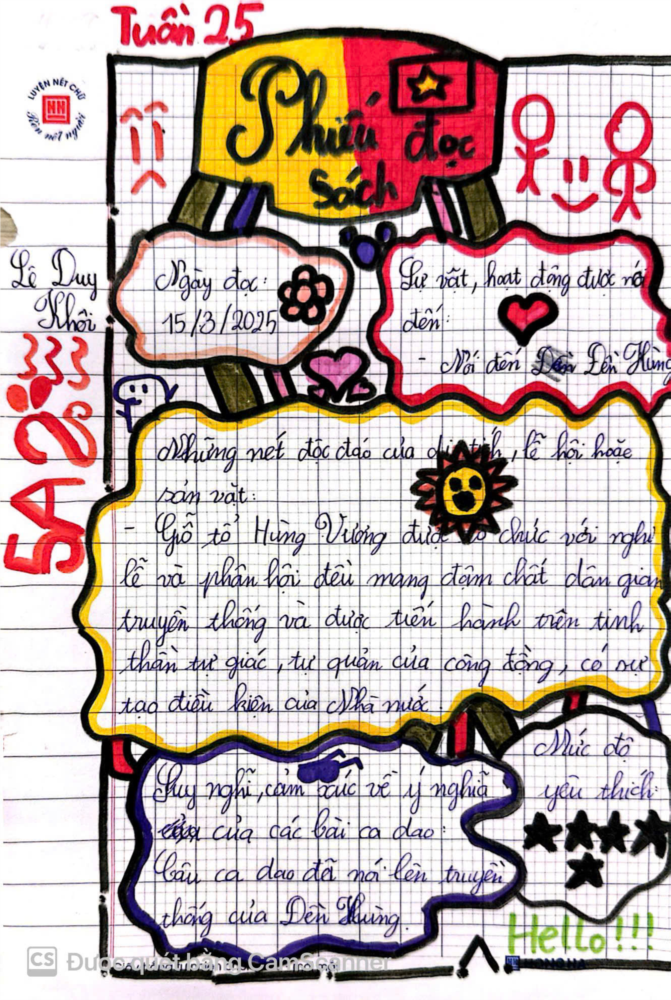 Tuần 25
LUYỆN NÉT CHỮ
Rèn nết người
Phiếu đọc
sách
Lê Duy
Khôi
5A2
Ngày đọc:
15/3/2025
Sự vật, hoạt động được nói
đến:
- Nói đến Đền Hùng
Những nét độc đáo của di tích, lễ hội hoặc
sản vật:
- Giỗ tổ Hùng Vương được tổ chức với nghi
lễ và phần hội đều mang đậm chất dân gian
truyền thống và được tiến hành trên tinh
thần tự giác, tự quản của cộng đồng, có sự
tạo điều kiện của Nhà nước.
Suy nghĩ, cảm xúc về ý nghĩa
của các bài ca dao:
Câu ca dao đã nói lên truyền
thống của Đền Hùng.
Mức độ
yêu thích:
Hello!!!
HONG HA
CS Được quét bằng CamScanner